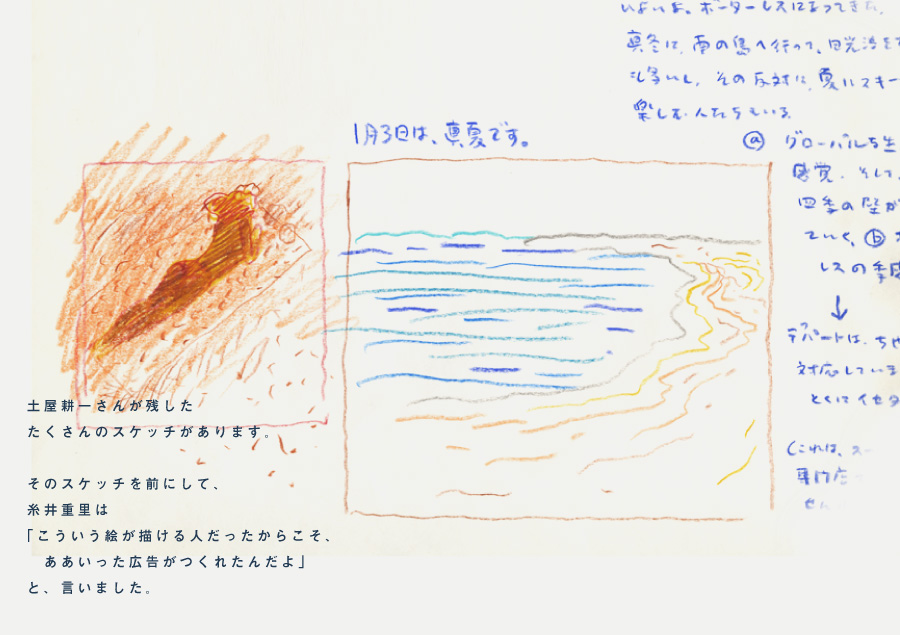 いよいよ。ボーダーレスになってきた。
真冬に、南の島へ行って、日光浴を
その反対に、夏にスキー
楽しむ人たちもいる。
1月3日は、真夏です。
ⓐ グローバルな生
感覚。そして、
四季の壁が
ていく。ⓑ
レスの季感
↓
デパートは、ちゃ
対応していま
とくにイセタ
(これは、ス
専門店
せん
土屋耕一さんが残した
たくさんのスケッチがあります。
そのスケッチを前にして、
糸井重里は
「こういう絵が描ける人だったからこそ、
ああいった広告がつくれたんだよ」
と、言いました。